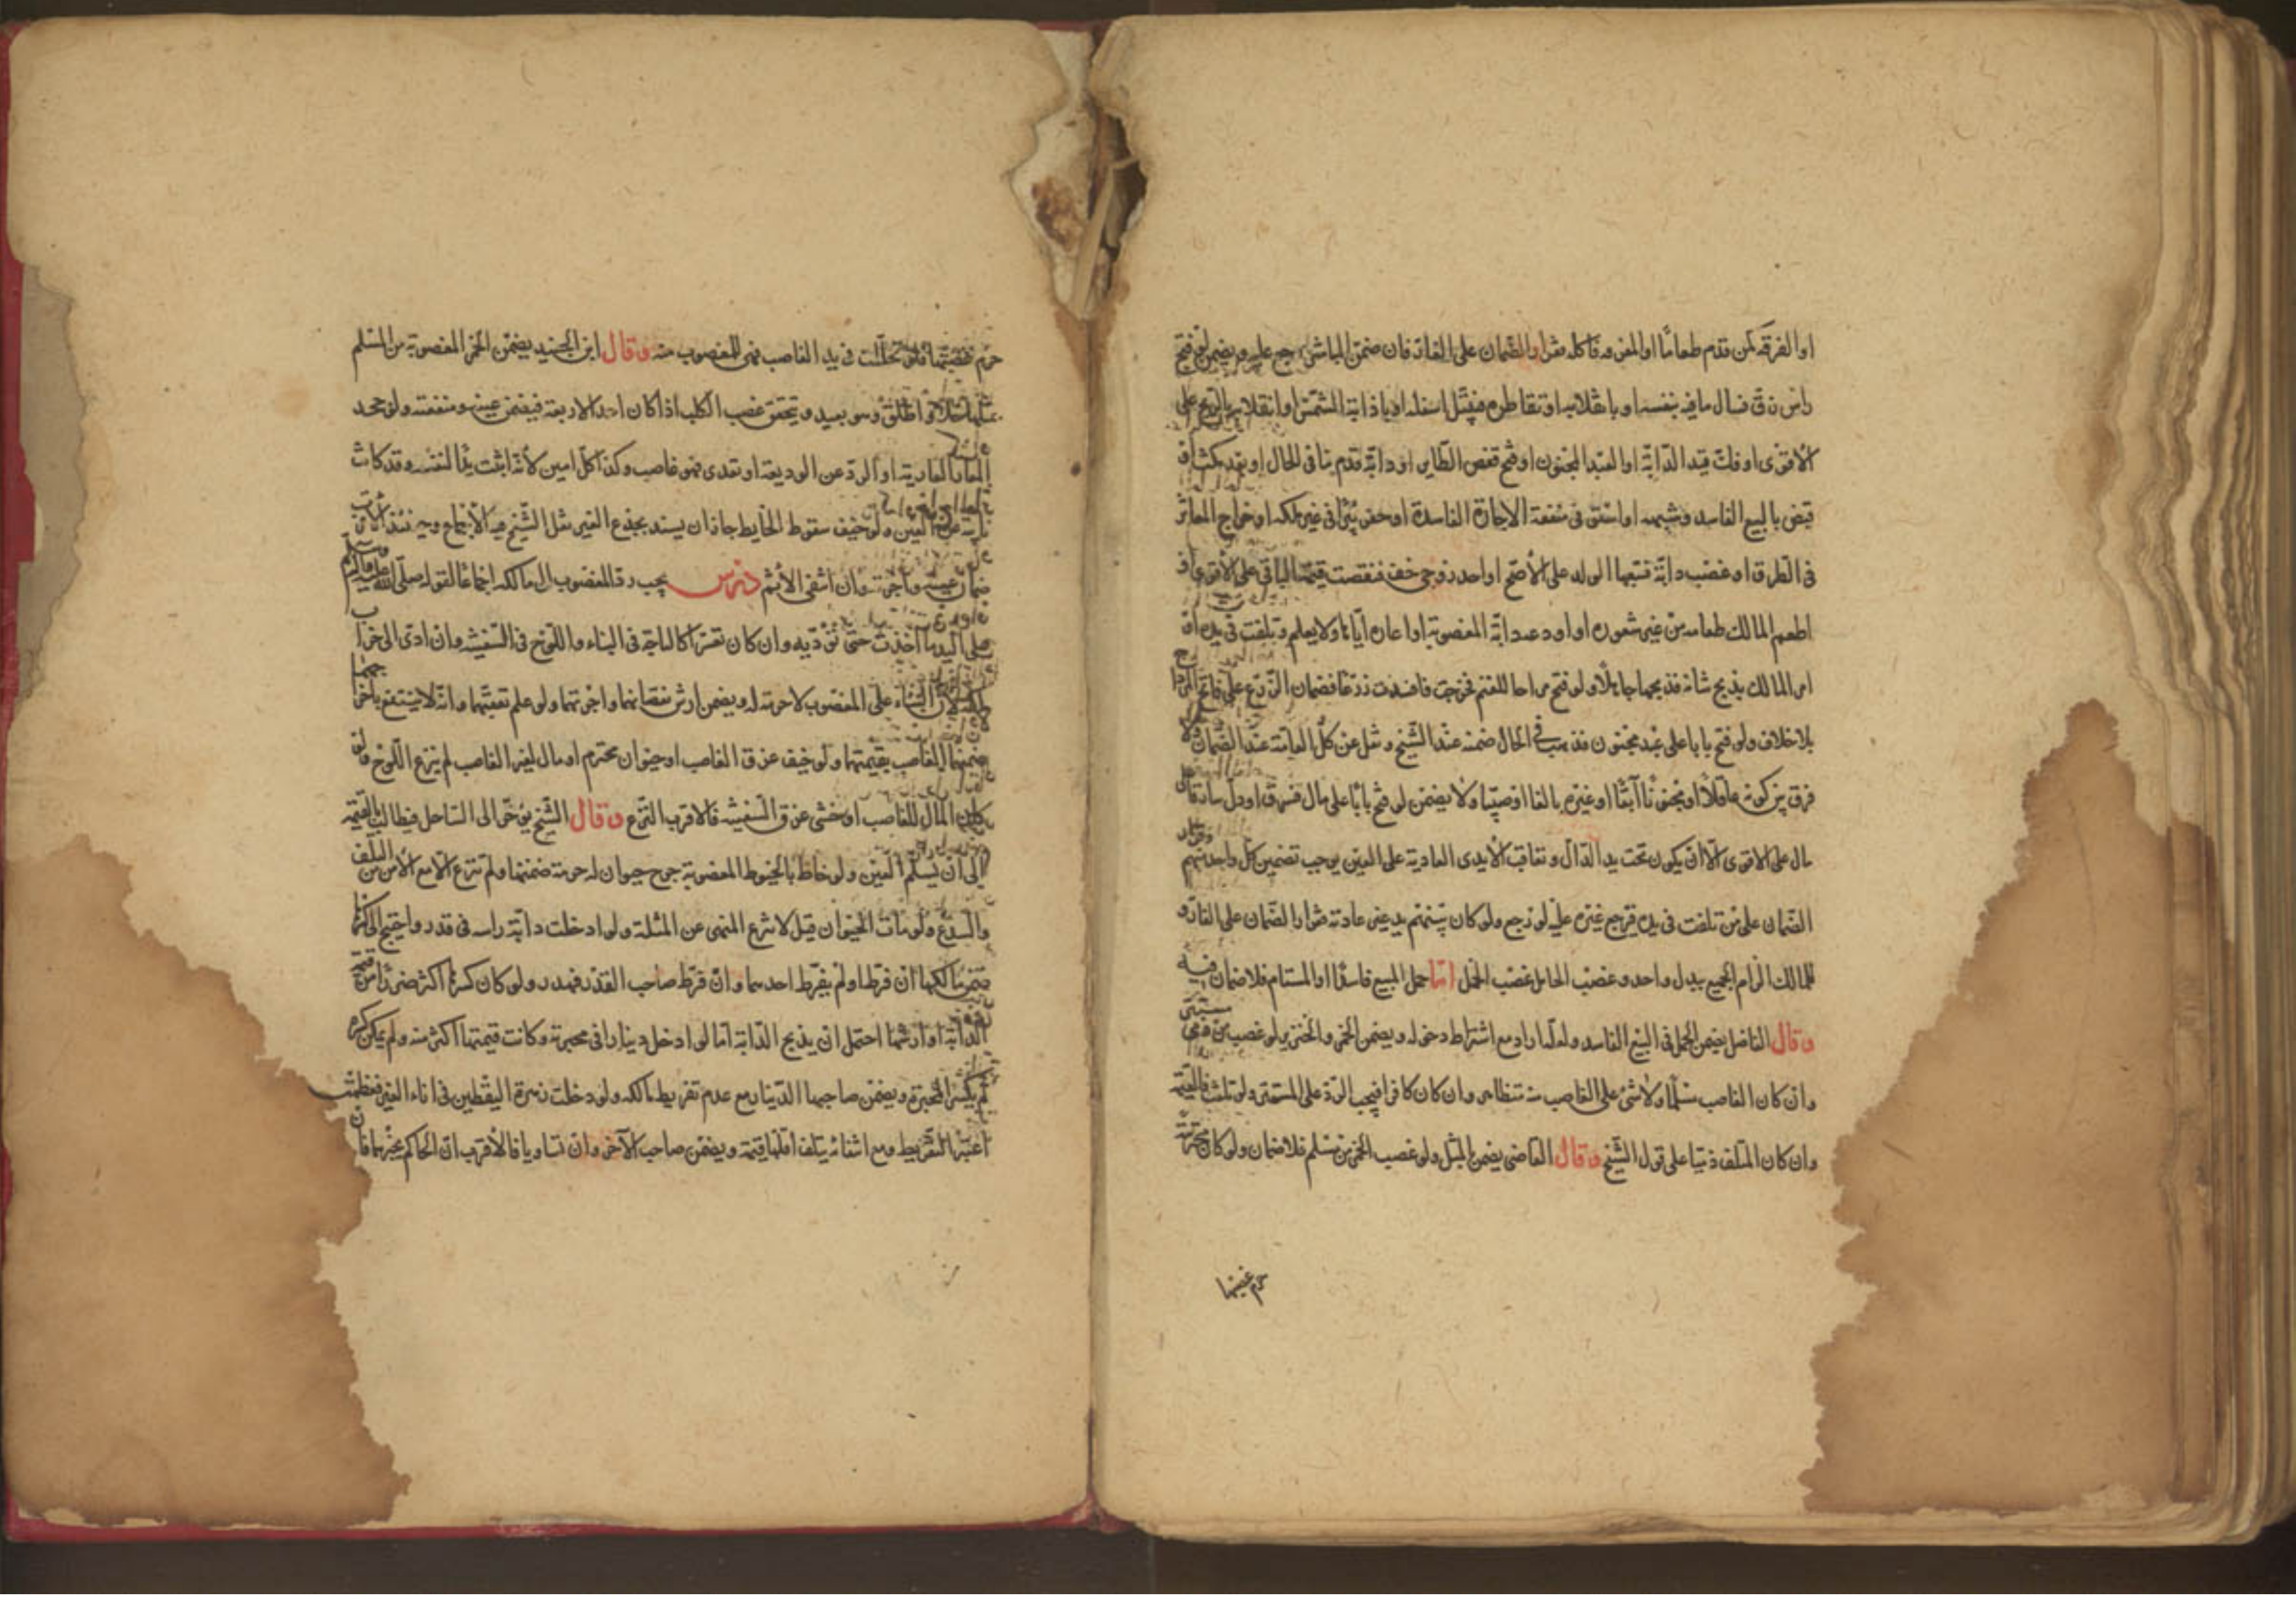 او الغرقه كمن قدم طعاما او المغرور فاكله فقرار الضمان على الغار فان ضمن المباشر رجع عليه ويضمن لو فتح
راس زق فسال ما فيه بنفسه او باثقلابه او تقاطره فيبتل اسفله او باذابة الشمس او انقلابه بالريح على
الاقوى او فك قيد الدابة او العبد المجنون او فتح قفص الطاير او دابة قدم بنا في الحال او بعد مكث او
قبض بالبيع الفاسد وشبهه او استوفى منفعة الاجارة الفاسدة او حفر بئرا في غير ملكه او طرح المعاثر
في الطرق او غصب دابة فتبعها الولد على الاصح او احد زوجي خف فنقصت قيمة الباقي على الاقوى او
اطعم المالك طعامه من غير شعوره او اودعه دابة المغصوبة او اعاره اياها ولا يعلم وتلفت في يده او
امر المالك بذبح شاته فذبحها جاهلا ولو فتح مراحا للغنم فخرجت فافسدت زرعا فضمان الزرع على فاتح المراح
بلا خلاف ولو فتح بابا على عبد مجنون فذهب في الحال ضمنه عند الشيخ ونقل عن كل العامة عدم الضمان ولا
فرق بين كونه عاقلا او مجنونا آبقا او غيره بالغا او صبيا ولا يضمن لو فتح بابا على مال فسرق او دل سارقا على
مال على الاقوى الا ان يكون تحت يد الدال وتعاقب الايدي العادية على العين يوجب تضمين كل واحد منهم وقرار
الضمان على من تلفت في يده فيرجع غيره عليه لو رجع ولو كان بينهم يد غير عادية فقرار الضمان على الغار و
للمالك الزام الجميع ببدل واحد وغصب الحامل غصب الحمل اما حمل المبيع فاسدا او المستام فلا ضمان فيه
وقال الفاضل يضمن الحمل في البيع الفاسد ولعله اراد مع اشتراط دخوله ويضمن الخمر والخنزير لو غصب من ذمي مستتر
وان كان الغاصب مسلما ولا شئ على الغاصب من متظاهر وان كان كافرا فيجب الرد على المستتر ولو تلفت فالقيمة
وان كان المتلف ذميا على قول الشيخ وقال القاضي يضمن المثل ولو غصب الخمر من مسلم فلا ضمان ولو كان محترمة
حرم غصبها
حرم غصبها فلو تخللت في يد الغاصب فهي للمغصوب منه وقال ابن الجنيد يضمن الخمر المغصوبة من المسلم
واطلق وهو بعيد ويتحقق غصب الكلب اذا كان احد الاربعة فيضمن عينه ومنفعته ولو جحد
العارية او الرد عن الوديعة او تعدى فهو غاصب وكذا كل امين لانه اثبت يدا لنفسه وقد كانت
العين ولو خيف سقوط الحايط جاز ان يسند بجذع الغير نقل الشيخ فيه الاجماع وحينئذ الاقرب
ضمان عينه واجرته وان انتفى الاثم درس يجب رد المغصوب الى مالكه اجماعا لقوله صلى الله عليه وآله وسلم
على اليد ما اخذت حتى تؤديه وان كان تعسر كالساجة في البناء واللوح في السفينة وان ادى الى خراب
ملكه لان البناء على المغصوب لا حرمة له ويضمن ارش نقصانهما واجرتهما ولو علم تعيبهما وانه لا ينتفع باخراجهما
ضمنهما الغاصب بقيمتهما ولو خيف غرق الغاصب او حيوان محترم او مال لغير الغاصب لم ينزع اللوح ولو
كان المال للغاصب او خشي غرق السفينة فالاقرب النزع وقال الشيخ يؤخر الى الساحل فيطالب بالقيمة
الى ان يسلم العين ولو خاط بالخيوط المغصوبة جرح حيوان له حرمة ضمنها ولم تنزع الا مع الامن من التلف
والشين ولو مات الحيوان قيل لا تنزع للنهي عن المثلة ولو ادخلت دابة راسه في قدر واحتيج الى كسرها
ضمن مالكها ان فرط او لم يفرط احدهما وان فرط صاحب القدر فهدر ولو كان كسرها اكثر ضررا من قيمة
الدابة او ارشها احتمل ان يذبح الدابة اما لو ادخل دينارا في محبرته وكانت قيمتها اكثر منه ولم يمكن كسره
لم يكسر المحبرة ويضمن صاحبها الدينار مع عدم تفريط مالكه ولو دخلت زهرة اليقطين في اناء الغير فعظمت
اعتبر التفريط ومع انتفائه يتلف اقلهما قيمة ويضمن صاحب الآخر وان تساويا فالاقرب ان الحاكم يخيرهما فان